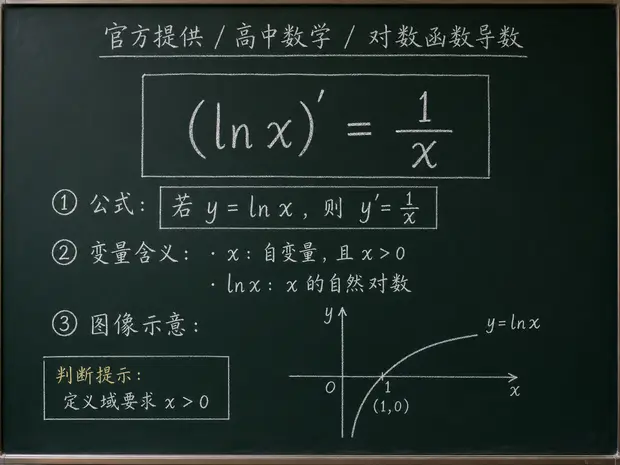 官方提供 / 高中数学 / 对数函数导数
(ln x)′ = 1/x
① 公式: 若 y = ln x, 则 y′ = 1/x
② 变量含义: · x: 自变量, 且 x > 0
· ln x: x 的自然对数
③ 图像示意:
y
y = ln x
判断提示:
定义域要求 x > 0
O
1
x
(1,0)